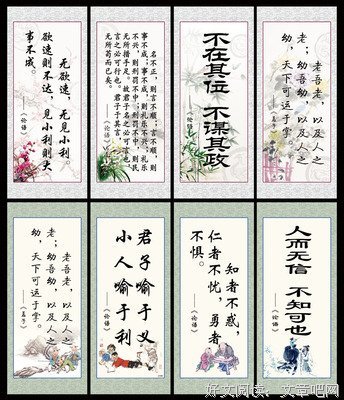 无欲速，无见小利。
欲速则不达，见小利则大
事不成。
——《论语》
名不正，则言不顺；言不顺，则
事不成；事不成，则礼乐不兴；礼乐
不兴，则刑罚不中；刑罚不中，则民
无所措手足。故君子名之必可言也，
言之必可行也。君子于其言，
无所苟而已矣。
——《论语》
不在其位 不谋其政
《论语》
老吾老，以及人之
老；幼吾幼，以及人之
幼，天下可运于掌。
——《孟子》
老吾老，以及人之
老；幼吾幼，以及人之
幼，天下可运于掌。
——《孟子》
君子喻于义
小人喻于利
《论语》
知者不惑，
仁者不忧，勇者
不惧。
——《论语》
人而无信 不知可也
《论语》
好文阅读：文章吧网